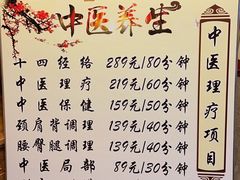 中医养生
十四经络 289元/80分钟
中医理疗 219元/60分钟
中医保健 159元/50分钟
颈肩背调理 139元/40分钟
腰臀腿调理 139元/40分钟
中医局部 89元/30分钟
中医理疗项目